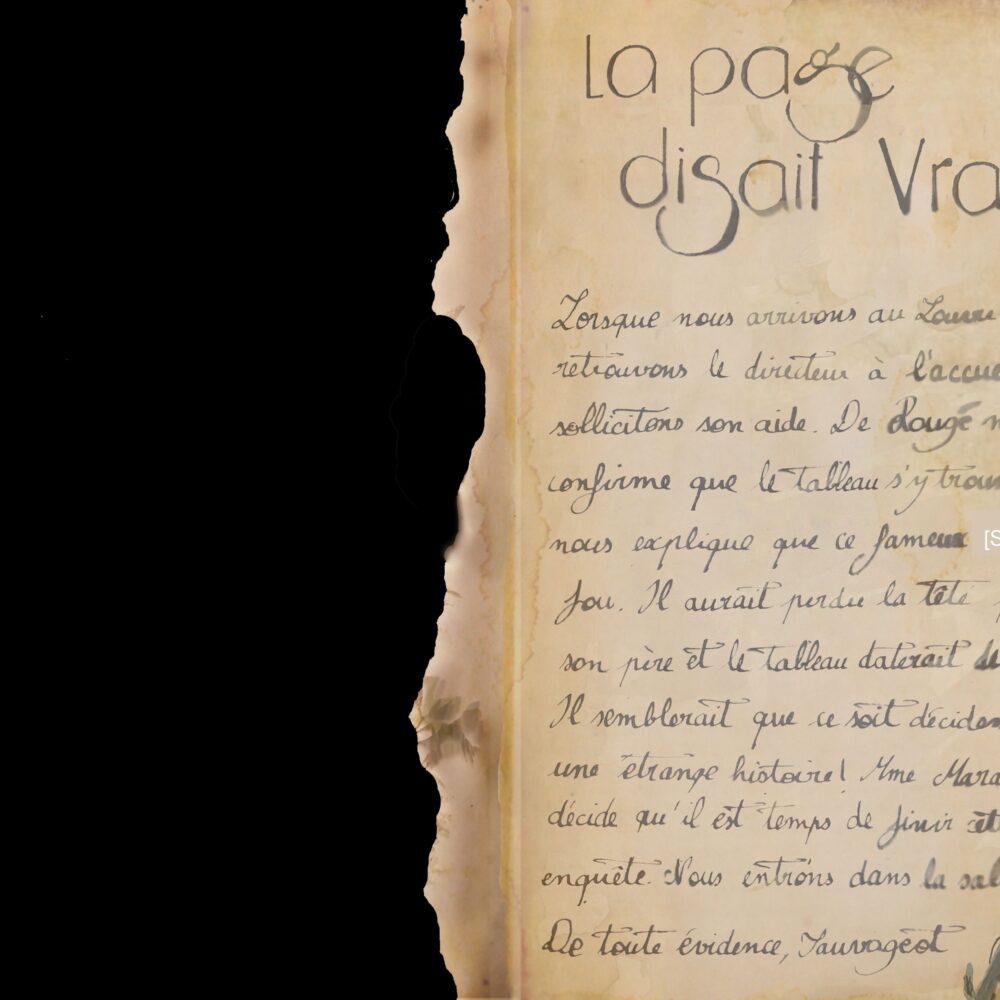 La page
disait Vra
Lorsque nous arrivons au Louvre
retrouvons le directeur à l'accue
sollicitons son aide. De Rougé n
confirme que le tableau s'y trouv
nous explique que ce fameux [S
fou. Il aurait perdu la tête p
son père et le tableau daterait de
Il semblerait que ce soit décidem
une étrange histoire! Mme Mara
décide qu'il est temps de finir cet
enquête. Nous entrons dans la sal
De toute évidence, Sauvageot